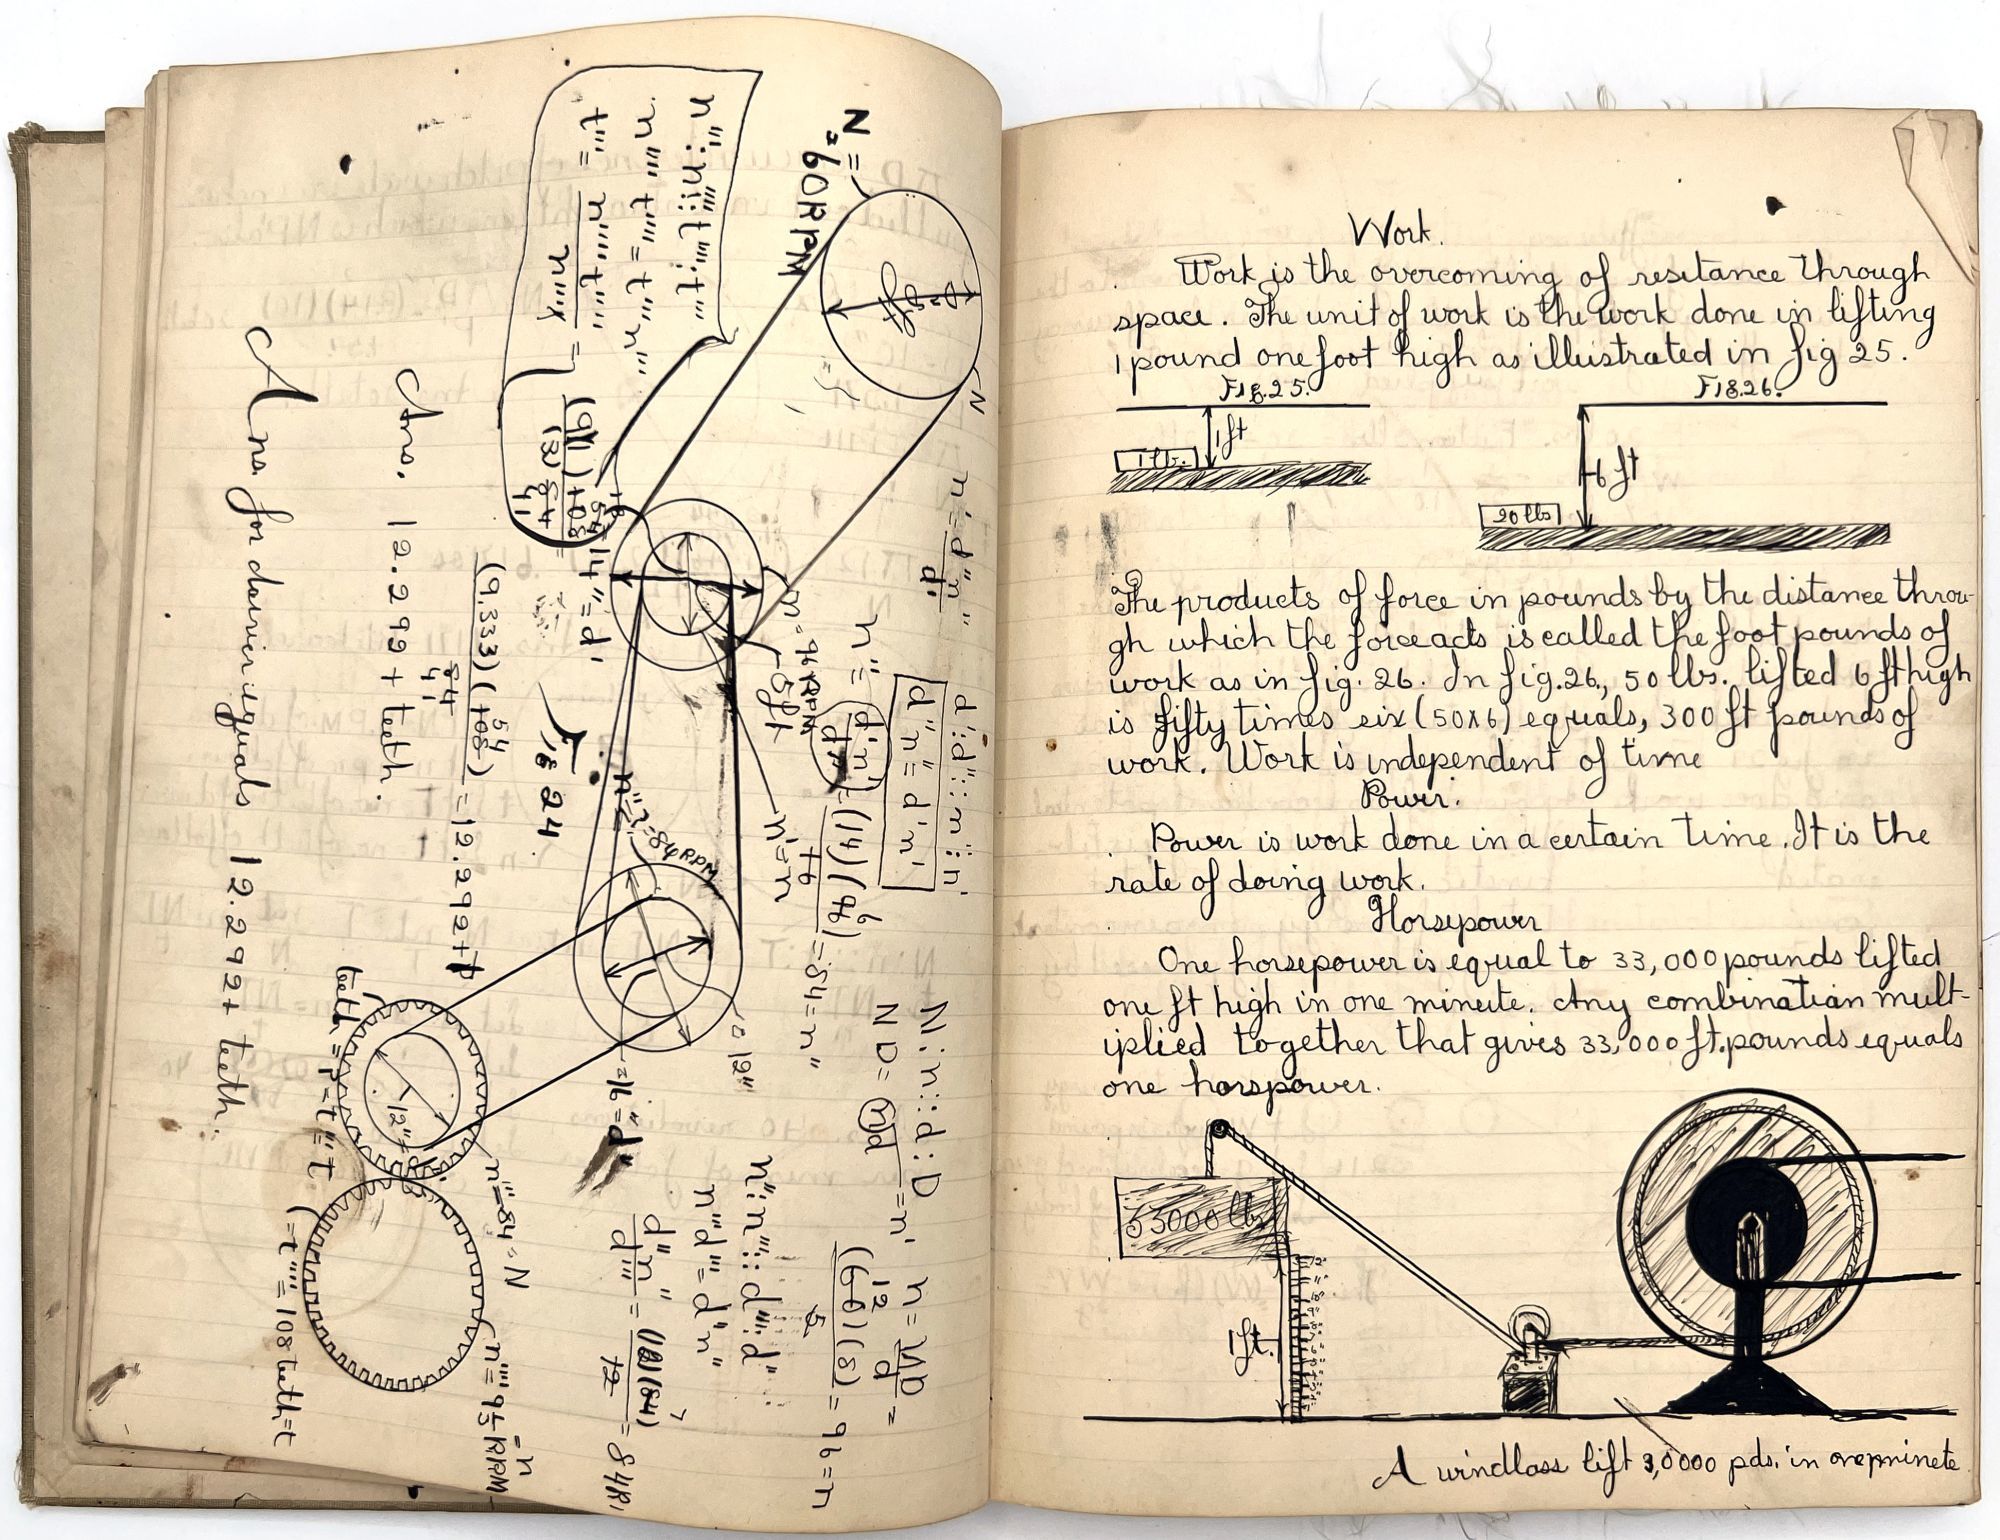 N = 60 RPM
N
n = 96 RPM
5 ft
14" = d'
n' = n
84 RPM
12"
= 16" = d"
12" =
teeth = P = t''' = t
n''' = 84 = N
(= t'''' = 108 teeth = t
N : n :: d : D
n = ND/d =
= 96 = n
d' : d" :: n" : n'
d" n" = d' n'
n" = d' n' / d"
(14)(96)
= 84 = n"
16
n" : n''' :: d''' : d"
n''' d''' = d" n"
= 84 R
(9.333)(108) = 12.292 + t
84
54
41
Ans. 12.292 + teeth.
Ans. for dawier equals 12.292 + teeth.
Work.
Work is the overcoming of resitance through
space. The unit of work is the work done in lifting
1 pound one foot high as illustrated in fig 25.
Fig. 25.
Fig. 26.
1 ft
1 lb.
6 ft
20 lbs
The products of force in pounds by the distance throu-
gh which the force acts is called the foot pounds of
work as in fig. 26. In fig. 26., 50 lbs. lifted 6 ft high
is fifty times six (50x6) equals, 300 ft pounds of
work. Work is independent of time
Power.
Power is work done in a certain time. It is the
rate of doing work.
Horsepower
One horsepower is equal to 33,000 pounds lifted
one ft high in one minute. Any combination mult-
iplied together that gives 33,000 ft. pounds equals
one horspower.
33000 lbs
1 ft.
A windlass lift 3,0000 pds. in one minete